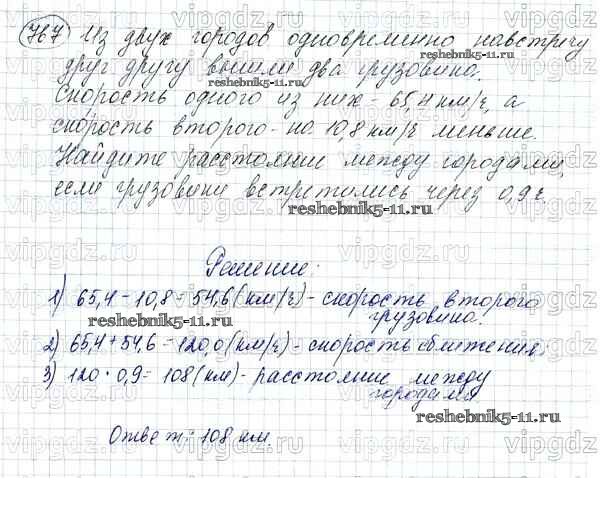 767 Из двух городов одновременно навстречу
друг другу вышли два грузовика.
Скорость одного из них - 65,4 км/ч, а
скорость второго - на 10,8 км/ч меньше.
Найдите расстояние между городами,
если грузовики встретились через 0,9 ч.
Решение:
1) 65,4 - 10,8 = 54,6 (км/ч) - скорость второго
грузовика.
2) 65,4 + 54,6 = 120,0 (км/ч) - скорость сближения
3) 120 · 0,9 = 108 (км) - расстояние между
городами
Ответ: 108 км.
vipgdz.ru
reshebnik5-11.ru
reshebnik5-11.ru
reshebnik5-11.ru
reshebnik5-11.ru